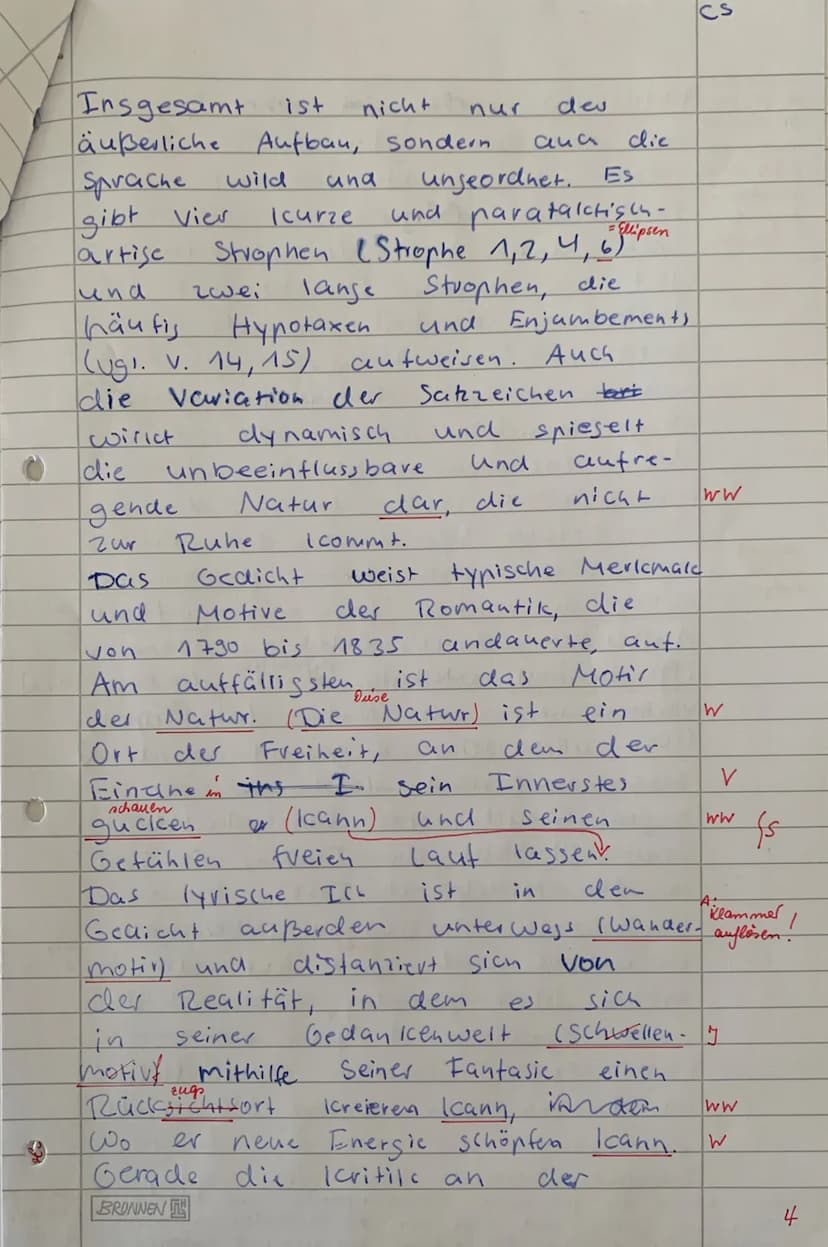 CS
Insgesamt ist nicht nur der
äußerliche Aufbau, sondern auch die
Sprache wild und ungeordnet. Es
gibt vier kurze und parataktisch-
= Ellipsen
artige Strophen (Strophe 1,2,4,6)
und zwei lange Strophen, die
häufig Hypotaxen und Enjambements
(vgl. V. 14,15) aufweisen. Auch
die Variation der Satzzeichen
wirkt dynamisch und spiegelt
die unbeeinflussbare und aufre-
gende Natur dar, die nicht WW
zur Ruhe kommt.
Das Gedicht weist typische Merkmale
und Motive der Romantik, die
von 1790 bis 1835 andauerte, auf.
Am auffälligsten ist das Motiv
Diese
der Natur. (Die Natur) ist ein W
Ort der Freiheit, an dem der
Einzelne in ins I sein Innerstes V
schauen
gucken (kann) und seinen WW
Gefühlen freien Lauf lassen.
Das lyrische Ich ist in den
A: Klammer auflösen!
Gedicht außerdem unterwegs (Wander-
motiv) und distanziert sich von
der Realität, in dem es sich
in seiner Gedankenwelt (Schwellen-
motiv) mithilfe seiner Fantasie einen
zugs
Rücksichtsort kreieren kann, WW
wo er neue Energie schöpfen kann. W
Gerade die Kritik an der
BRUNNEN
4